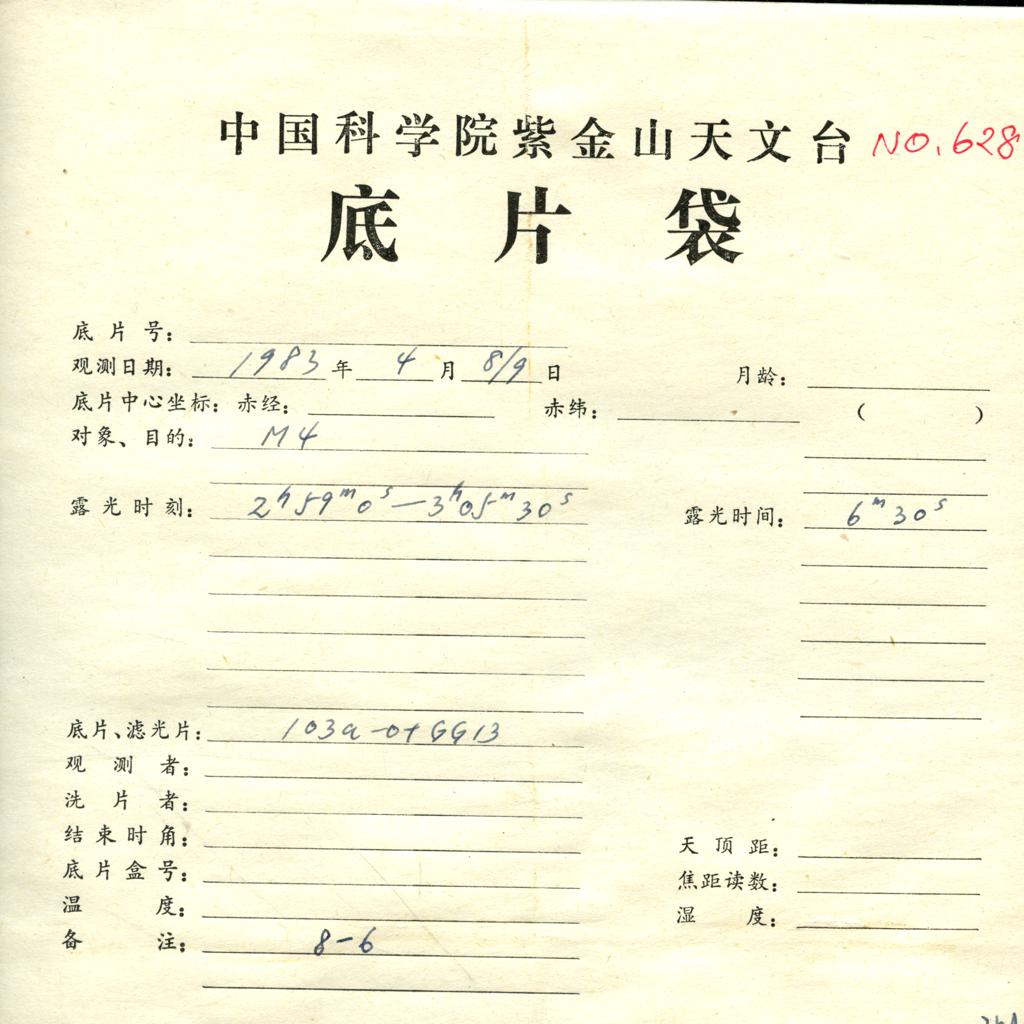 中国科学院紫金山天文台 NO.628
底片袋
底片号：
观测日期：1983年4月8/9日 月龄：
底片中心坐标：赤经： 赤纬： （ ）
对象、目的：M4
露光时刻：2ʰ59ᵐ0ˢ—3ʰ05ᵐ30ˢ 露光时间：6ᵐ30ˢ
底片、滤光片：103a-O+GG13
观测者：
洗片者：
结束时角： 天顶距：
底片盒号： 焦距读数：
温度： 湿度：
备注：8-6